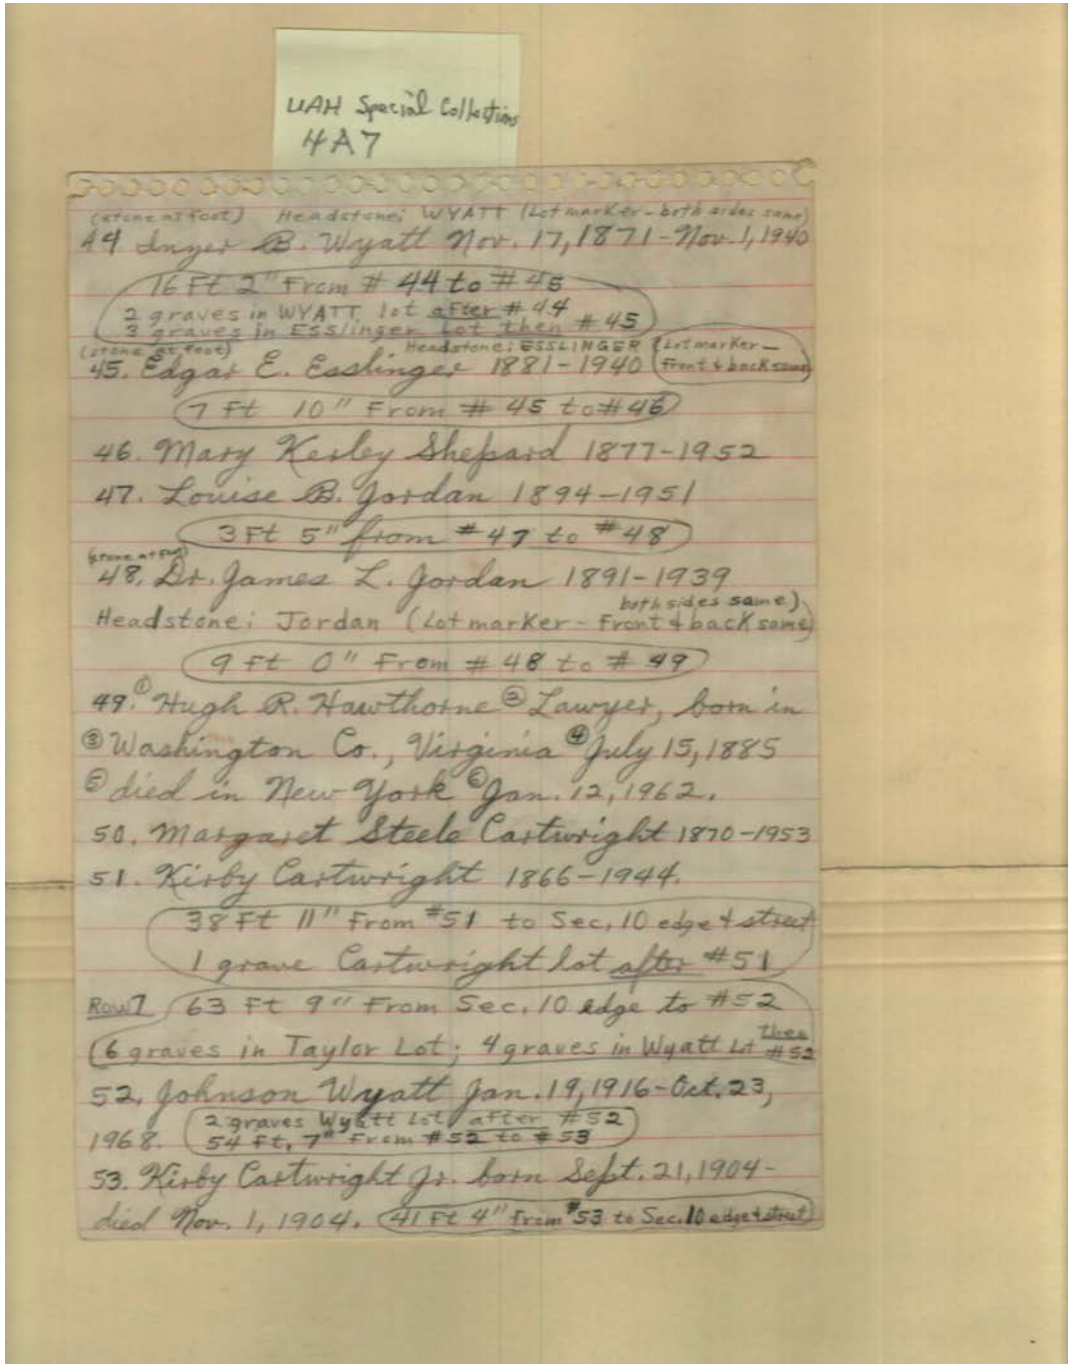 UAH Special Collections
4A7
(stone at foot) Headstone: WYATT (Lot marker - both sides same)
44 Inyer B. Wyatt Nov. 17, 1871 - Nov. 1, 1940
16 Ft 2" From # 44 to # 45
2 graves in WYATT lot after # 44
3 graves in ESSlinger Lot then # 45
(stone at foot) Headstone: ESSLINGER (Lot marker -
45. Edgar E. Esslinger 1881 - 1940 Front & back same)
7 Ft 10" From # 45 to # 46
46. Mary Kerley Shepard 1877 - 1952
47. Louise B. Jordan 1894 - 1951
3 Ft 5" from # 47 to # 48
(stone at foot)
48. Dr. James L. Jordan 1891 - 1939
both sides same)
Headstone: Jordan (Lot marker - Front & back same)
9 Ft 0" From # 48 to # 49
49. ① Hugh R. Hawthorne ② Lawyer, born in
③ Washington Co., Virginia ④ July 15, 1885
⑤ died in New York ⑥ Jan. 12, 1962.
50. Margaret Steele Cartwright 1870 - 1953
51. Kirby Cartwright 1866 - 1944.
38 Ft 11" From #51 to Sec. 10 edge & street
1 grave Cartwright lot after #51
Row 7 63 Ft 9" From Sec. 10 edge to #52
6 graves in Taylor Lot; 4 graves in Wyatt Lot then #52
52. Johnson Wyatt Jan. 19, 1916 - Oct. 23,
2 graves Wyatt Lot after #52
1968. 54 Ft. 7" From #52 to #53
53. Kirby Cartwright Jr. born Sept. 21, 1904 -
died Nov. 1, 1904. 41 Ft 4" from #53 to Sec. 10 edge & street